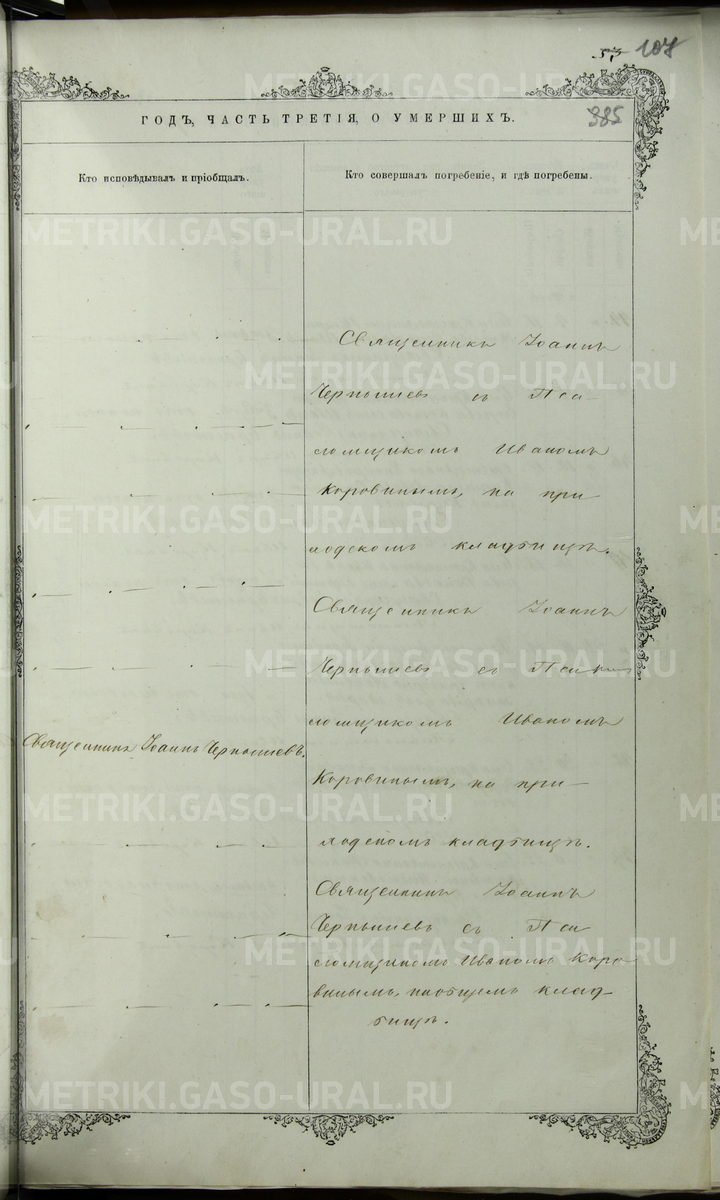 57 107
385
ГОДЪ, ЧАСТЬ ТРЕТІЯ, О УМЕРШИХЪ.
Кто исповѣдывалъ и пріобщалъ.
Кто совершалъ погребеніе, и гдѣ погребены.
Священникъ Іоаннъ
Чернышевъ съ Пса-
ломщикомъ Иваномъ
Коровинымъ, на при
ходскомъ кладбищѣ.
Священникъ Іоаннъ
Чернышевъ съ
ломщикомъ Иваномъ
Священникъ Іоаннъ Чернышевъ.
Коровинымъ, на при-
ходскомъ кладбищѣ.
Священникъ Іоаннъ
Чернышевъ съ Пса
ломщикомъ Иваномъ Коро
винымъ, на общемъ клад-
бищѣ.
METRIKI.GASO-URAL.RU